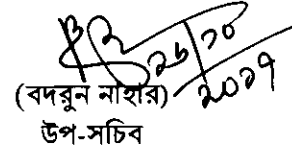 ২৬/১০
২০১৭
(বদরুন নাহার)
উপ-সচিব